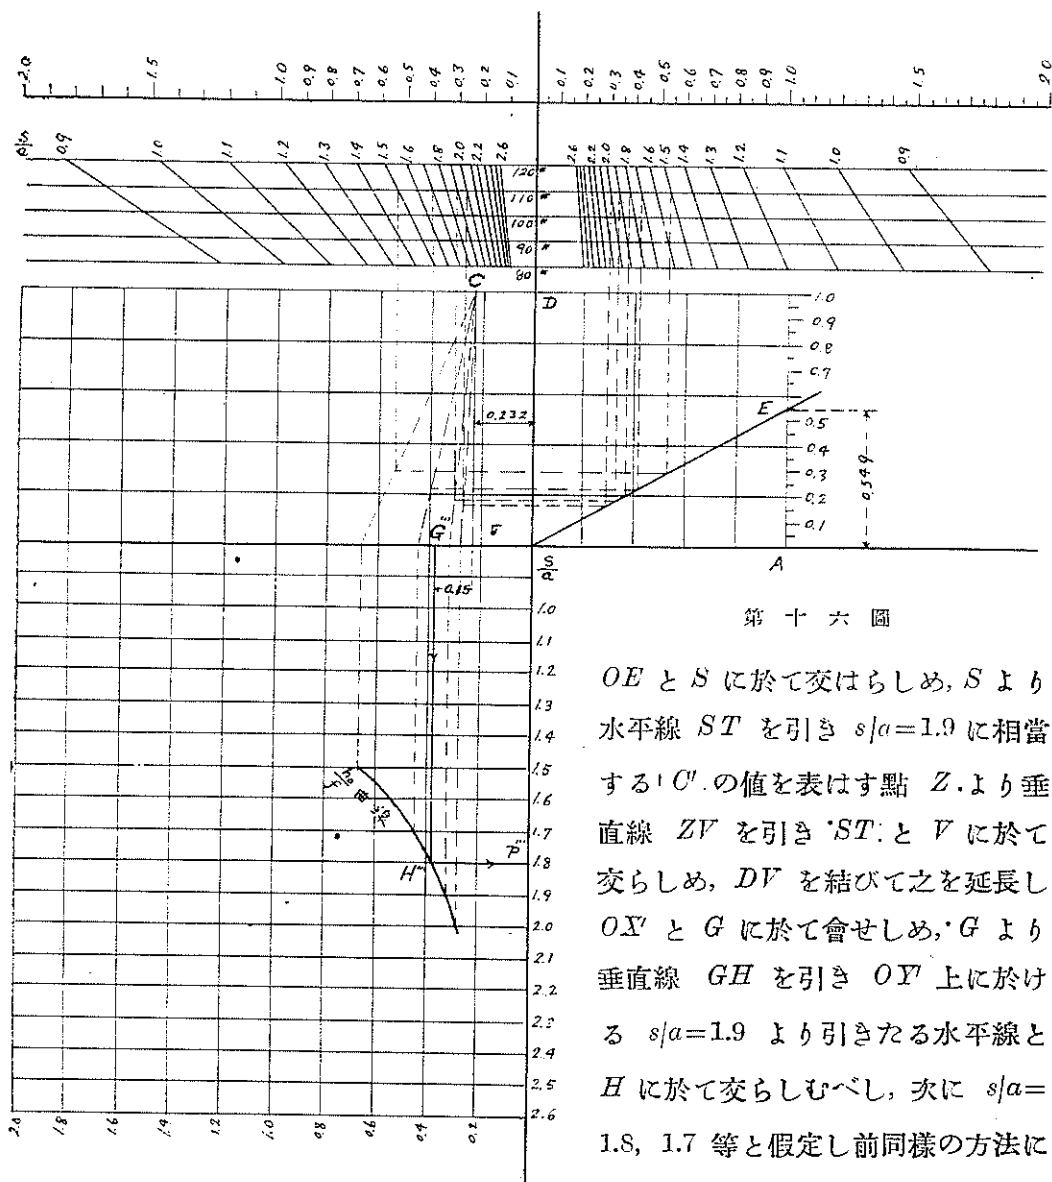 2.0 1.5 1.0 0.9 0.8 0.7 0.6 0.5 0.4 0.3 0.2 0.1 0.1 0.2 0.3 0.4 0.5 0.6 0.7 0.8 0.9 1.0 1.5 2.0
0.9 1.0 1.1 1.2 1.3 1.4 1.5 1.6 1.8 2.0 2.2 2.6 2.6 2.2 2.0 1.8 1.6 1.5 1.4 1.3 1.2 1.1 1.0 0.9
120"
110"
100"
90"
80"
C
D
1.0
0.9
0.8
0.7
E
0.5
0.4
0.3
0.2
0.1
0.232
0.549
G'''
S/a
A
1.0
1.1
1.2
1.3
1.4
1.5
1.6
1.7
1.8
1.9
2.0
2.1
2.2
2.3
2.4
2.5
2.6
曲線
H'''
P'''
2.0 1.8 1.6 1.4 1.2 1.0 0.8 0.6 0.4 0.2
第十六圖
OE と S に於て交はらしめ, S より
水平線 ST を引き s/a=1.9 に相當
する C' の値を表はす點 Z より垂
直線 ZV を引き ST と V に於て
交らしめ, DV を結びて之を延長し
OX' と G に於て會せしめ, G より
垂直線 GH を引き OY' 上に於け
る s/a=1.9 より引きたる水平線と
H に於て交らしむべし, 次に s/a=
1.8, 1.7 等と假定し前同樣の方法に